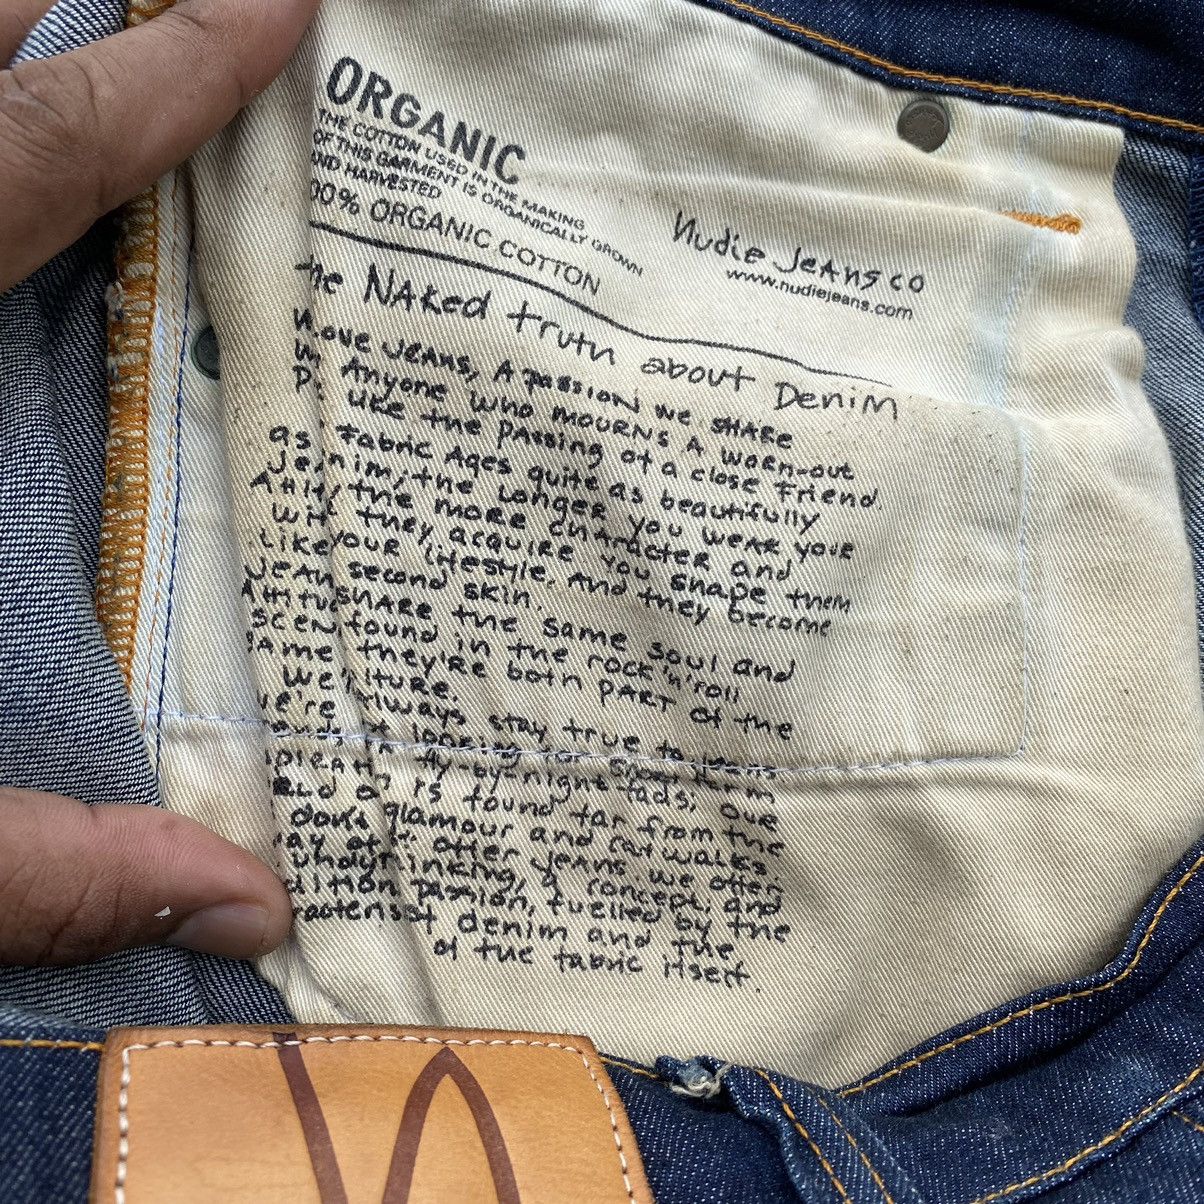 ORGANIC
THE COTTON USED IN THE MAKING
OF THIS GARMENT IS ORGANICALLY GROWN
AND HARVESTED
100% ORGANIC COTTON
Nudie Jeans co
www.nudiejeans.com
the Naked truth about Denim
love jeans, A passion we share
Anyone who mourns A worn-out
like the passing of a close friend.
as fabric Ages quite as beautifully
the longer you wear your
the more character and
they acquire you shape them
your lifestyle. And they become
second skin.
share the same soul and
found in the rock'n'roll
they're both part of the
always stay true to jeans
looking for short term
fly-by-night fads; our
is found far from the
glamour and catwalks.
offer jeans we offer
a concept, and
passion, fuelled by the
denim and the
of the fabric itself.